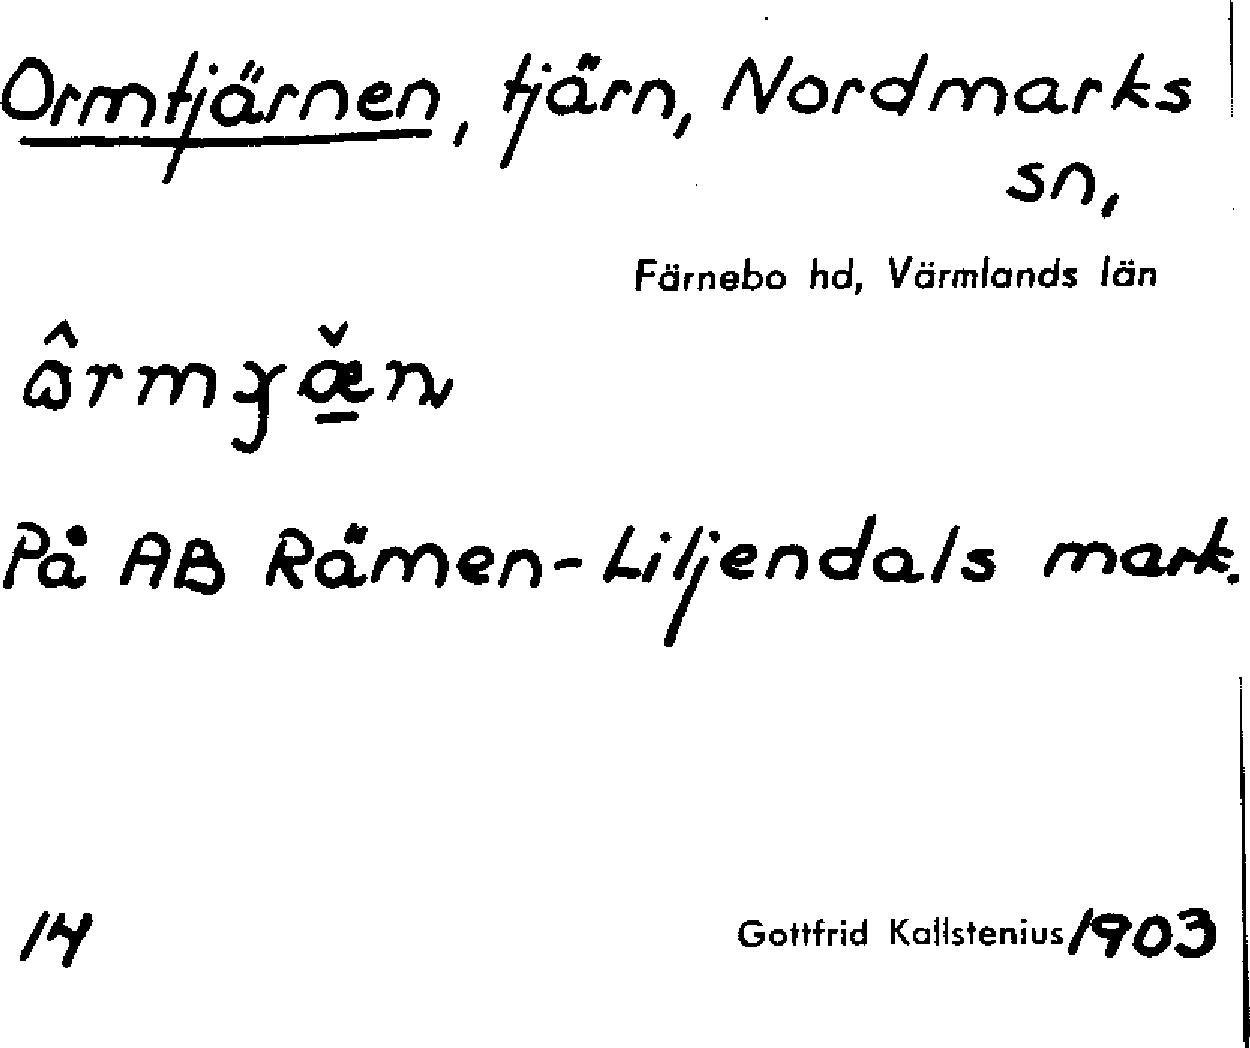 Ormtjärnen, tjärn, Nordmarks
sn,
Färnebo hd, Värmlands län
På AB Rämen-Liljendals mark.
14
Gottfrid Kallstenius/1903